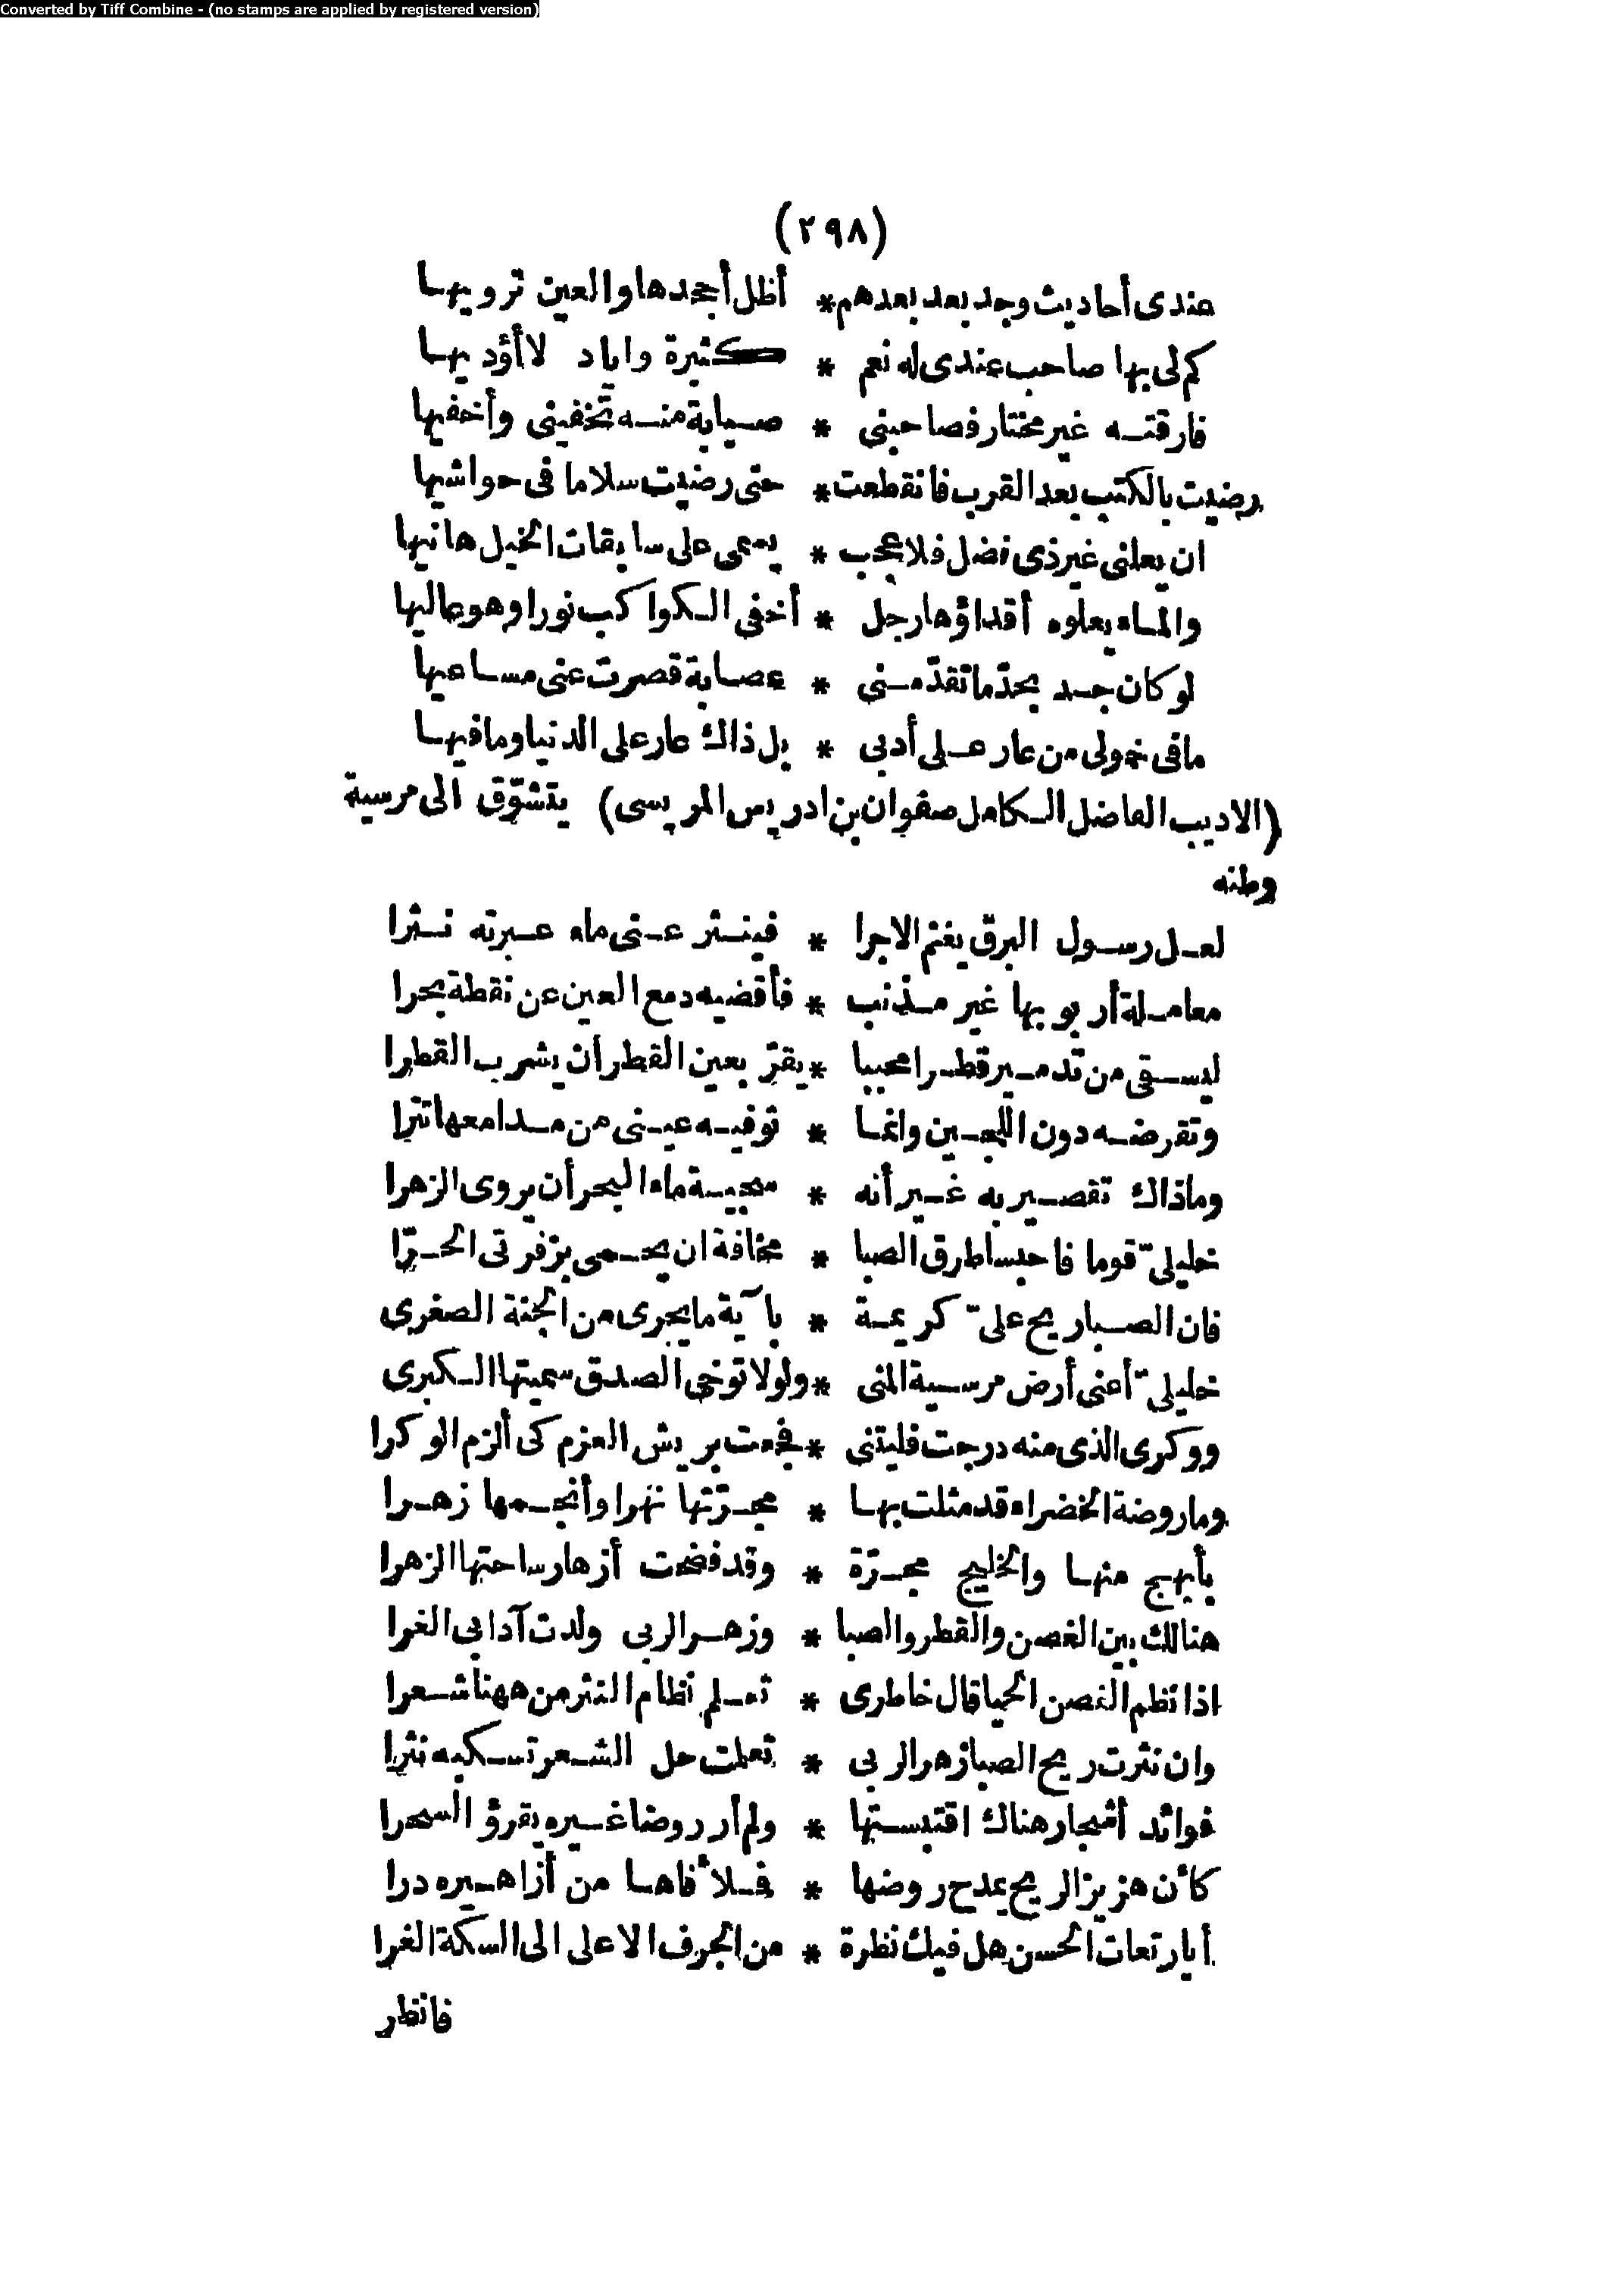 Converted by Tiff Combine - (no stamps are applied by registered version)
(٢٩٨)
عندى أحاديث وجد بعد بعدهم * أظل أجحدها والعين ترويها
كم لى بها صاحب عندى له نعم * كثيرة واياد لا أؤديها
فارقته غير مختار فصاحبنى * صبابة منه تخفينى وأخفيها
رضيت بالكتب بعد القرب فانقطعت * حتى رضيت سلاما فى حواشيها
ان يعلنى غير ذى فضل فلا عجب * يسمى على سابقات الخيل هانيها
والماء يعلوه أقذاؤها رجل * أخفى الكواكب نورا وهو عاليها
لو كان جد بجد ما تقدمنى * عصابة قصرت عنى مساعيها
ما فى خولى من عار على أدبى * بل ذاك عار على الدنيا وما فيها
(الاديب الفاضل الكامل صفوان بن ادريس المريسى) يتشوّق الى مرسية
وطنه
لعل رسول البرق يغنم الاجرا * فينثر عنى ماء عبرته نثرا
معاملة أربو بها غير مذنب * فأقضيه دمع العين عن نقطة بحرا
ليسقى من تدمير قطرا محببا * يقرّ بعين القطر أن يشرب القطرا
وتقرضه دون اللجين وانما * توفيه عينى من مدامعها تبرا
وماذاك تقصير به غير أنه * سجية ماء البحر أن يروى الزهرا
خليلىّ قوما فاحبسا طرق الصبا * مخافة ان يحمى بزفرتى الحرّا
فان الصبا ريح علىّ كريمة * بآية ما يجرى من الجنة الصغرى
خليلىّ أعنى أرض مرسية المنى * ولولا توخى الصدق سميتها الكبرى
ووكرى الذى منه درجت فليتنى * فجعت بريش العزم كى ألزم الوكرا
وما روضة الخضراء قد مثلت بها * مجرّتها نهرا وأنجمها زهرا
بأبهج منها والخليج مجرّة * وقد فضحت أزهار ساحتها الزهرا
هنالك بين الغصن والقطر والصبا * وزهر الربى ولدت آدابى الغرا
اذا نظم الغصن الحيا قال خاطرى * تعلم نظام النثر من ههنا شعرا
وان نثرت ريح الصبا زهر الربى * تعلمت حل الشعر تسكبه نثرا
فوائد أشجار هناك اقتبستها * ولم أر روضا غيره يقرؤ السحرا
كأن هزيز الريح يمدح روضها * فلأ فاها من أزاهيره درا
أيا رتعات الحسن هل فيك نظرة * من الجرف الاعلى الى السكة الغرا
فانظر